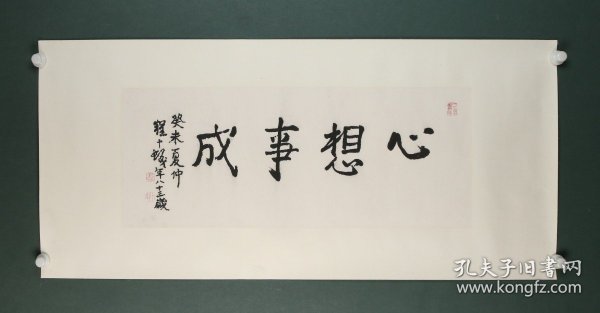 心想事成
癸未夏仲
程十髪年八十三歲
孔夫子旧书网
www.kongfz.com